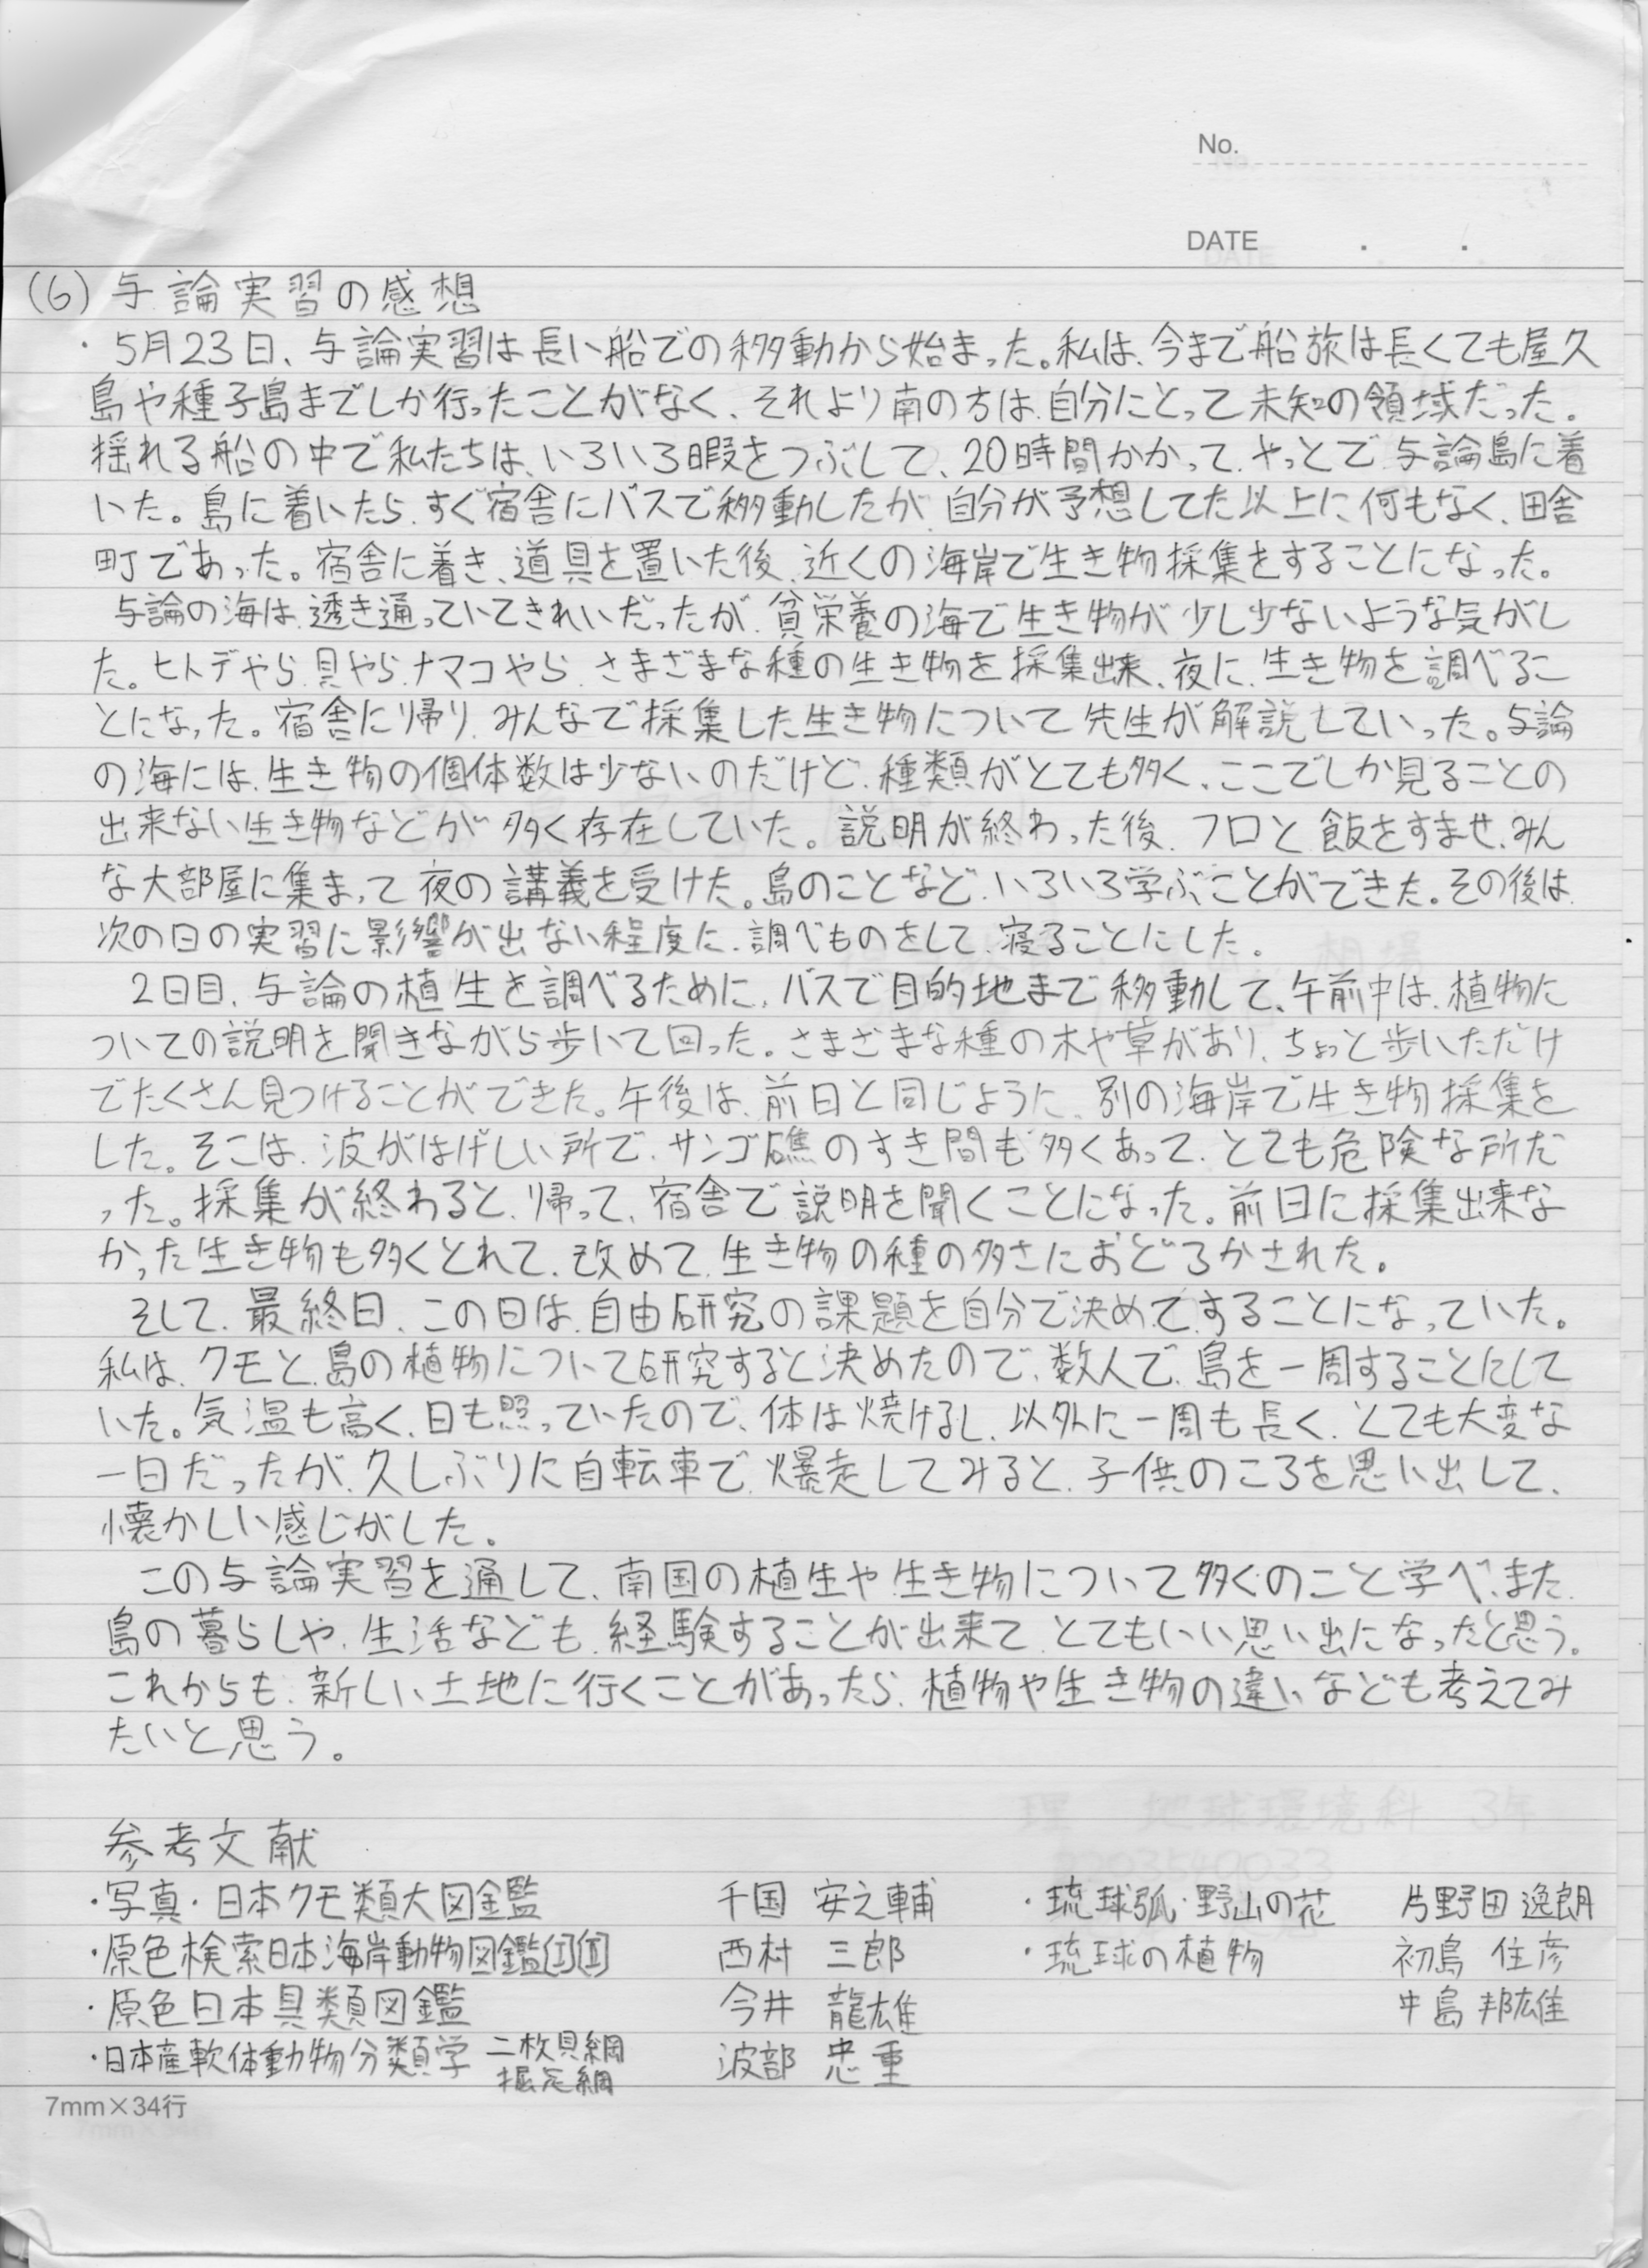 No.
DATE . .
(6) 与論実習の感想
・5月23日、与論実習は長い船での移動から始まった。私は、今まで船旅は長くても屋久
島や種子島までしか行ったことがなく、それより南の方は、自分にとって未知の領域だった。
揺れる船の中で私たちは、いろいろ暇をつぶして、20時間かかって、やっとで与論島に着
いた。島に着いたら、すぐ宿舎にバスで移動したが、自分が予想してた以上に何もなく、田舎
町であった。宿舎に着き、道具を置いた後、近くの海岸で生き物採集をすることになった。
与論の海は、透き通っていてきれいだったが、貧栄養の海で生き物が少し少ないような気がし
た。ヒトデやら、貝やら、ナマコやら、さまざまな種の生き物を採集出来、夜に、生き物を調べるこ
とになった。宿舎に帰り、みんなで採集した生き物について先生が解説していった。与論
の海には、生き物の個体数は少ないのだけど、種類がとても多く、ここでしか見ることの
出来ない生き物などが多く存在していた。説明が終わった後、フロと飯をすませ、みん
な大部屋に集まって夜の講義を受けた。島のことなど、いろいろ学ぶことができた。その後は、
次の日の実習に影響が出ない程度に、調べものをして、寝ることにした。
2日目、与論の植生を調べるために、バスで目的地まで移動して、午前中は、植物に
ついての説明を聞きながら歩いて回った。さまざまな種の木や草があり、ちょっと歩いただけ
でたくさん見つけることができた。午後は、前日と同じように、別の海岸で生き物採集を
した。そこは、波がはげしい所で、サンゴ礁のすき間も多くあって、とても危険な所だ
った。採集が終わると、帰って、宿舎で説明を聞くことになった。前日に採集出来な
かった生き物も多くとれて、改めて、生き物の種の多さにおどろかされた。
そして、最終日、この日は、自由研究の課題を自分で決めて、することになっていた。
私は、クモと、島の植物について研究すると決めたので、数人で、島を一周することにして
いた。気温も高く、日も照っていたので、体は焼けるし、以外に一周も長く、とても大変な
一日だったが、久しぶりに自転車で、爆走してみると、子供のころを思い出して、
懐かしい感じがした。
この与論実習を通して、南国の植生や生き物について多くのこと学べ、また、
島の暮らしや、生活なども、経験することが出来て、とてもいい思い出になったと思う。
これからも、新しい土地に行くことがあったら、植物や生き物の違いなども考えてみ
たいと思う。
参考文献
・写真・日本クモ類大図鑑 千国 安之輔 ・琉球弧・野山の花 片野田 逸朗
・原色検索日本海岸動物図鑑[I][II] 西村 三郎 ・琉球の植物 初島 住彦
・原色日本貝類図鑑 今井 龍雄 中島 邦雄
・日本産軟体動物分類学 二枚貝綱 掘足綱 波部 忠重
7mm×34行